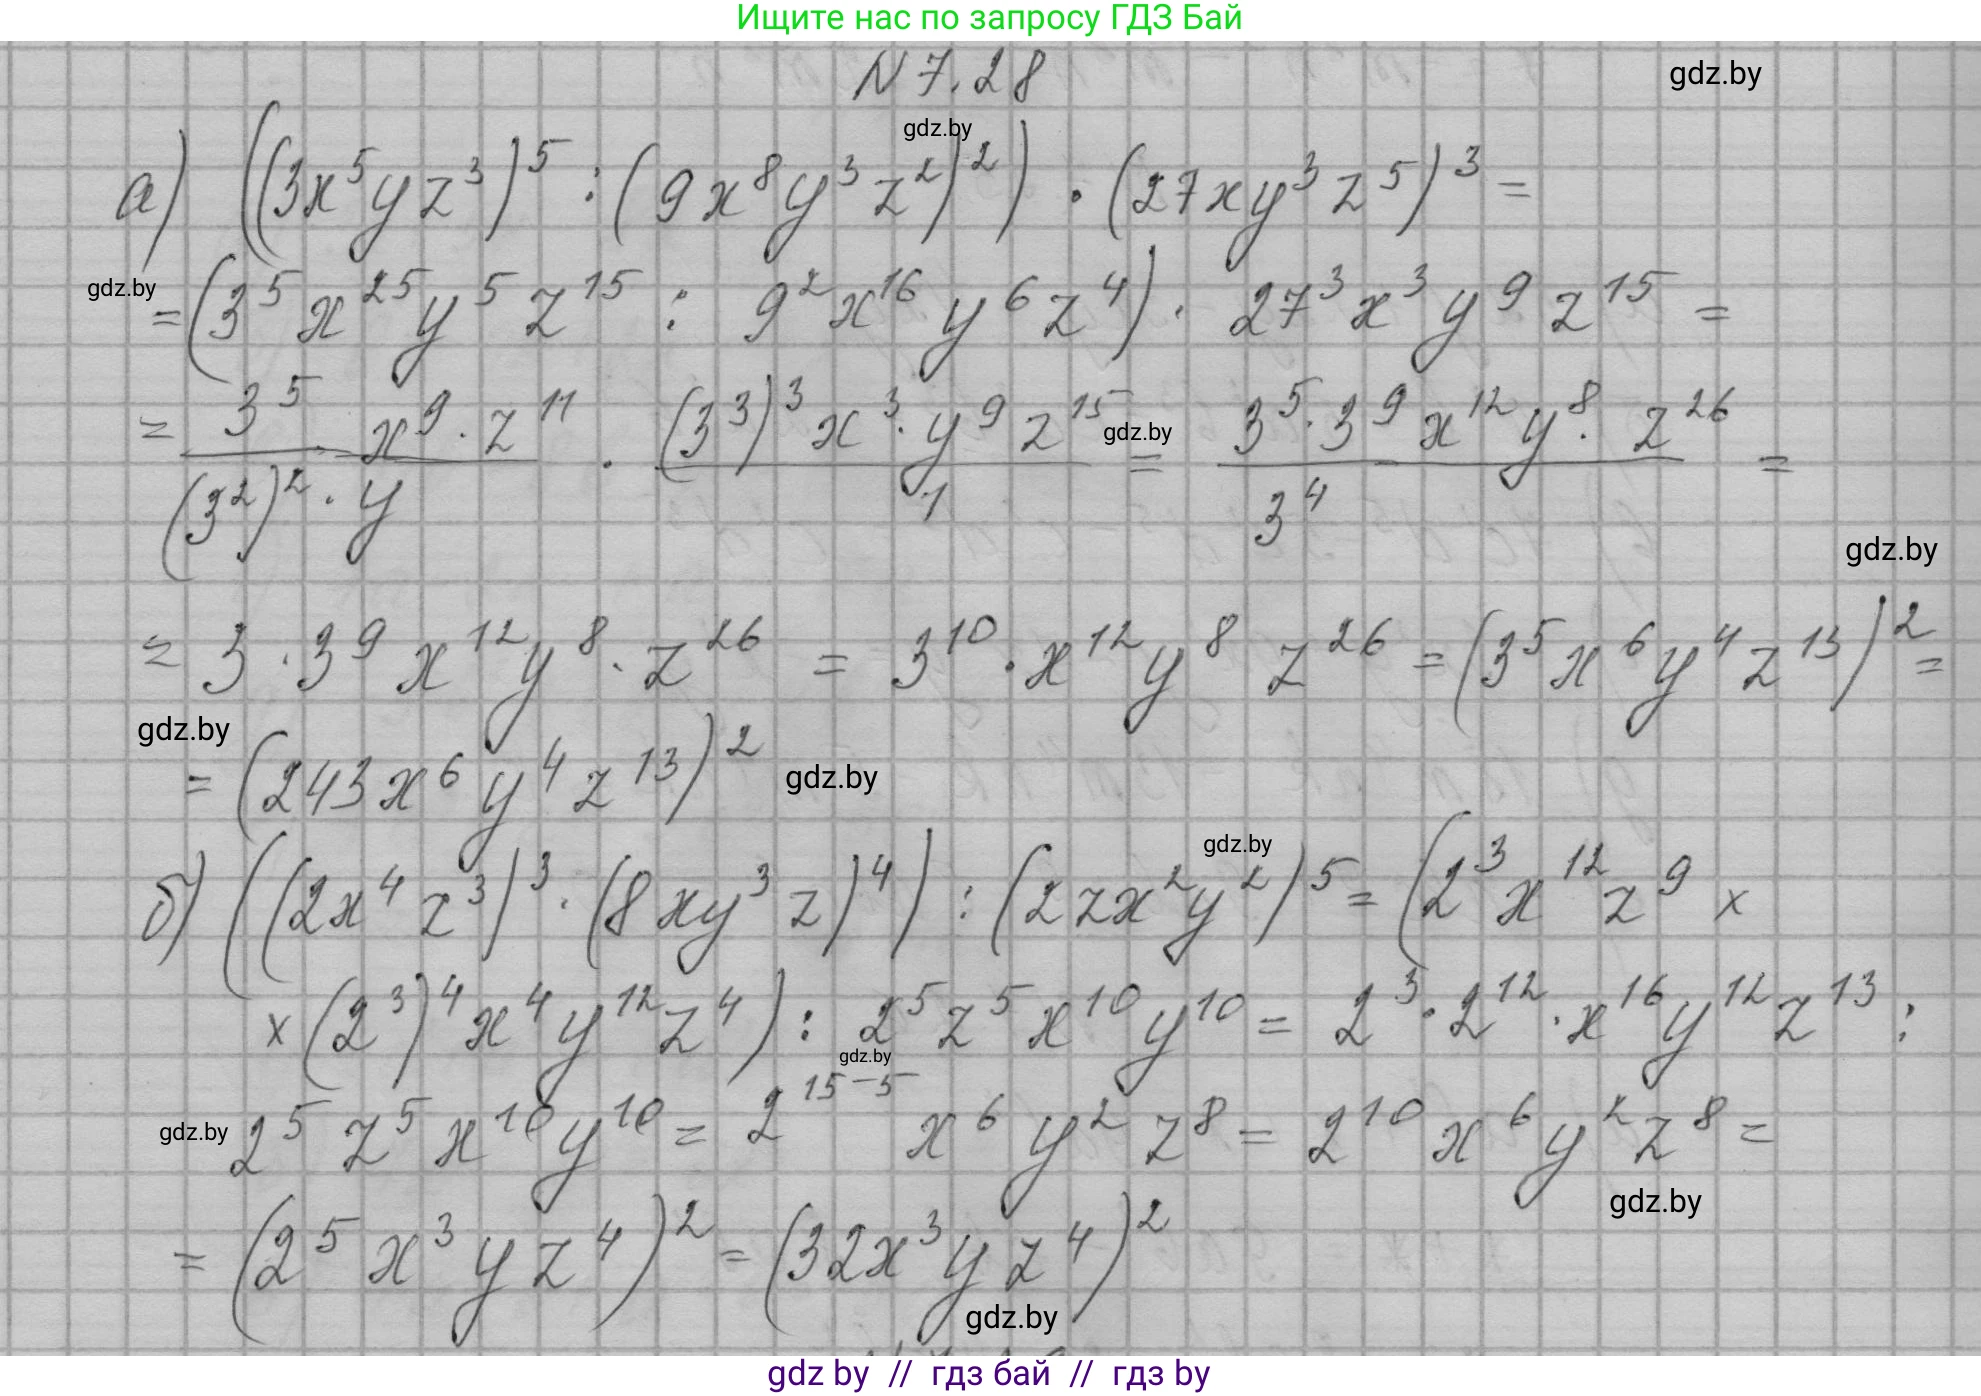 Ищите нас по запросу ГДЗ Бай
N 7.28
gdz.by
gdz.by
а) ((3x⁵yz³)⁵ : (9x⁸y³z²)²) · (27xy³z⁵)³ =
gdz.by
= (3⁵x²⁵y⁵z¹⁵ : 9²x¹⁶y⁶z⁴) · 27³x³y⁹z¹⁵ =
= (3⁵ x⁹·z¹¹)/((3²)²·y) · ((3³)³x³·y⁹z¹⁵)/1 = (3⁵·3⁹x¹²y⁸·z²⁶)/3⁴ =
gdz.by
gdz.by
= 3·3⁹x¹²y⁸·z²⁶ = 3¹⁰·x¹²y⁸z²⁶ = (3⁵x⁶y⁴z¹³)² =
gdz.by
= (243x⁶y⁴z¹³)²
gdz.by
gdz.by
б) ((2x⁴z³)³ · (8xy³z)⁴) : (2zx²y²)⁵ = (2³x¹²z⁹ ×
× (2³)⁴x⁴y¹²z⁴) : 2⁵z⁵x¹⁰y¹⁰ = 2³·2¹²·x¹⁶y¹²z¹³ :
gdz.by
gdz.by
2⁵z⁵x¹⁰y¹⁰ = 2¹⁵⁻⁵x⁶y²z⁸ = 2¹⁰x⁶y²z⁸ =
gdz.by
= (2⁵x³yz⁴)² = (32x³yz⁴)²
gdz.by
gdz by // гдз бай // гдз by